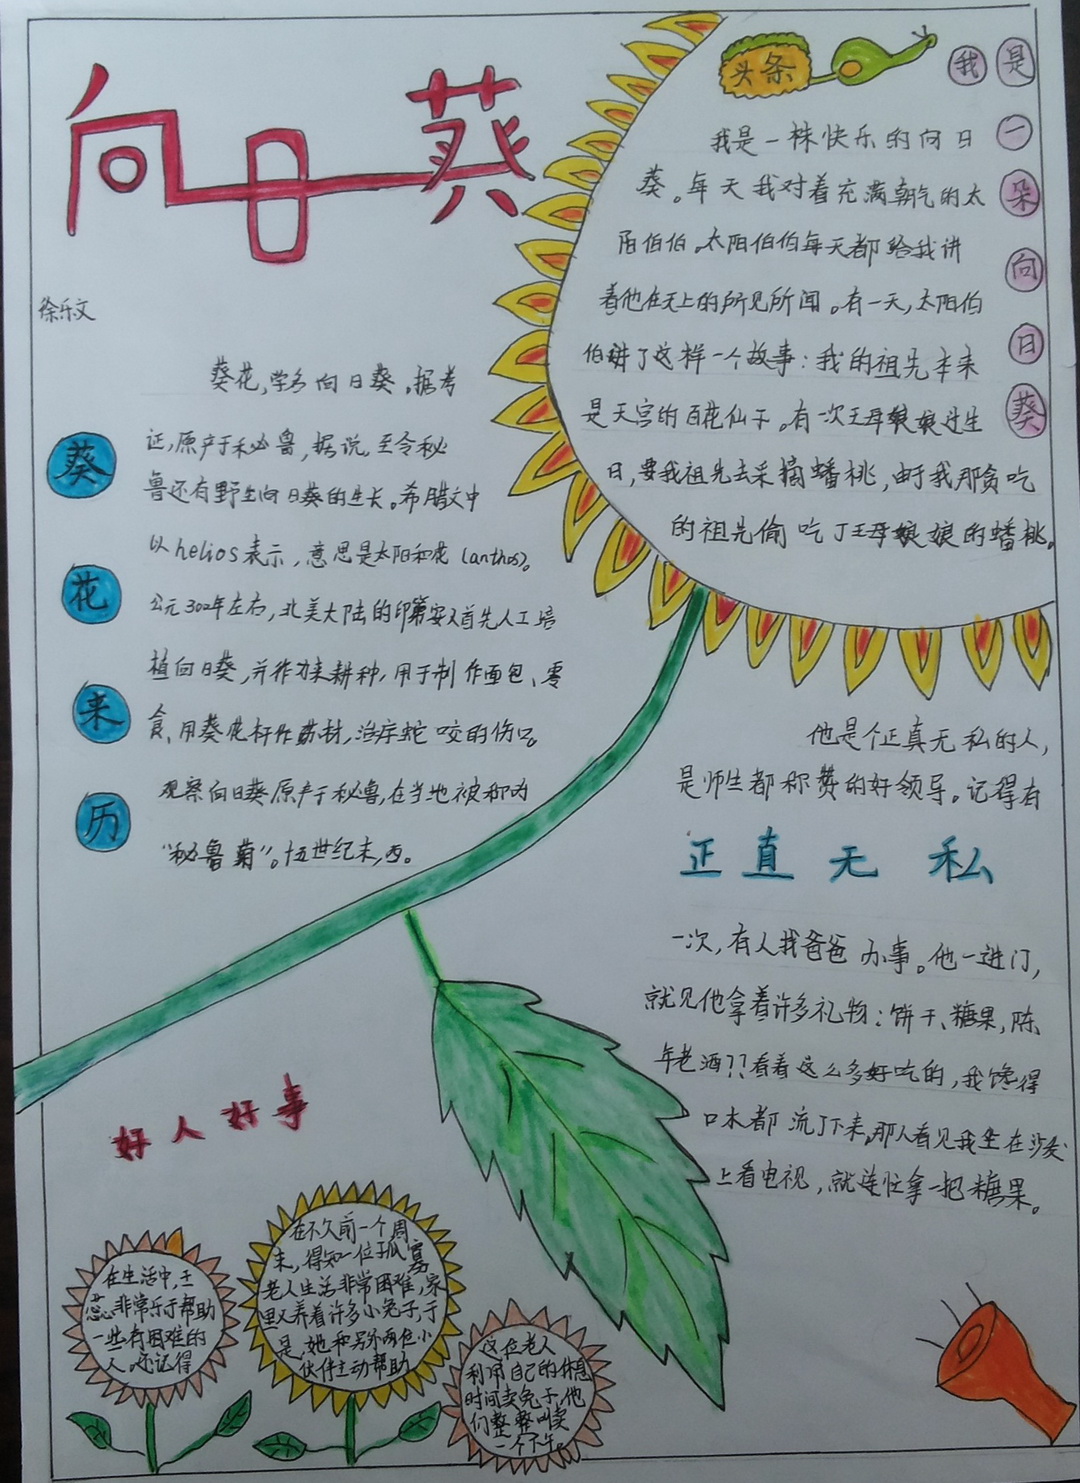 向日葵
徐乐文
头条
我是一朵向日葵
我是一株快乐的向日
葵。每天我对着充满朝气的太
阳伯伯。太阳伯伯每天都给我讲
着他在天上的所见所闻。有一天,太阳伯
伯讲了这样一个故事:我的祖先本来
是天宫的百花仙子。有一次王母娘娘过生
日,要我祖先去采摘蟠桃,由于我那贪吃
的祖先偷吃了王母娘娘的蟠桃。
葵花来历
葵花,学名向日葵。据考
证,原产于秘鲁,据说,至今秘
鲁还有野生向日葵的生长。希腊文中
以helios表示,意思是太阳和花(anthos)。
公元302年左右,北美大陆的印第安人首先人工培
植向日葵,并作为来耕种,用于制作面包、零
食、用葵花杆作药材,治疗蛇咬的伤口。
观察向日葵原产于秘鲁,在当地被称为
“秘鲁菊”。十五世纪末,西。
他是个正真无私的人,
是师生都称赞的好领导。记得有
正直无私
一次,有人我爸爸办事。他一进门,
就见他拿着许多礼物:饼干、糖果,陈
年老酒??看着这么多好吃的,我馋得
口水都流了下来,那人看见我坐在沙发
上看电视,就连忙拿一把糖果。
好人好事
在生活中,王
蕊非常乐于帮助
一些有困难的
人。还记得
在不久前一个周
末,得知一位孤寡
老人生活非常困难,家
里又养着许多小兔子,于
是,她和另外两位小
伙伴主动帮助
这位老人
利用自己的休息
时间卖兔子,他
们整整叫卖
一个下午。